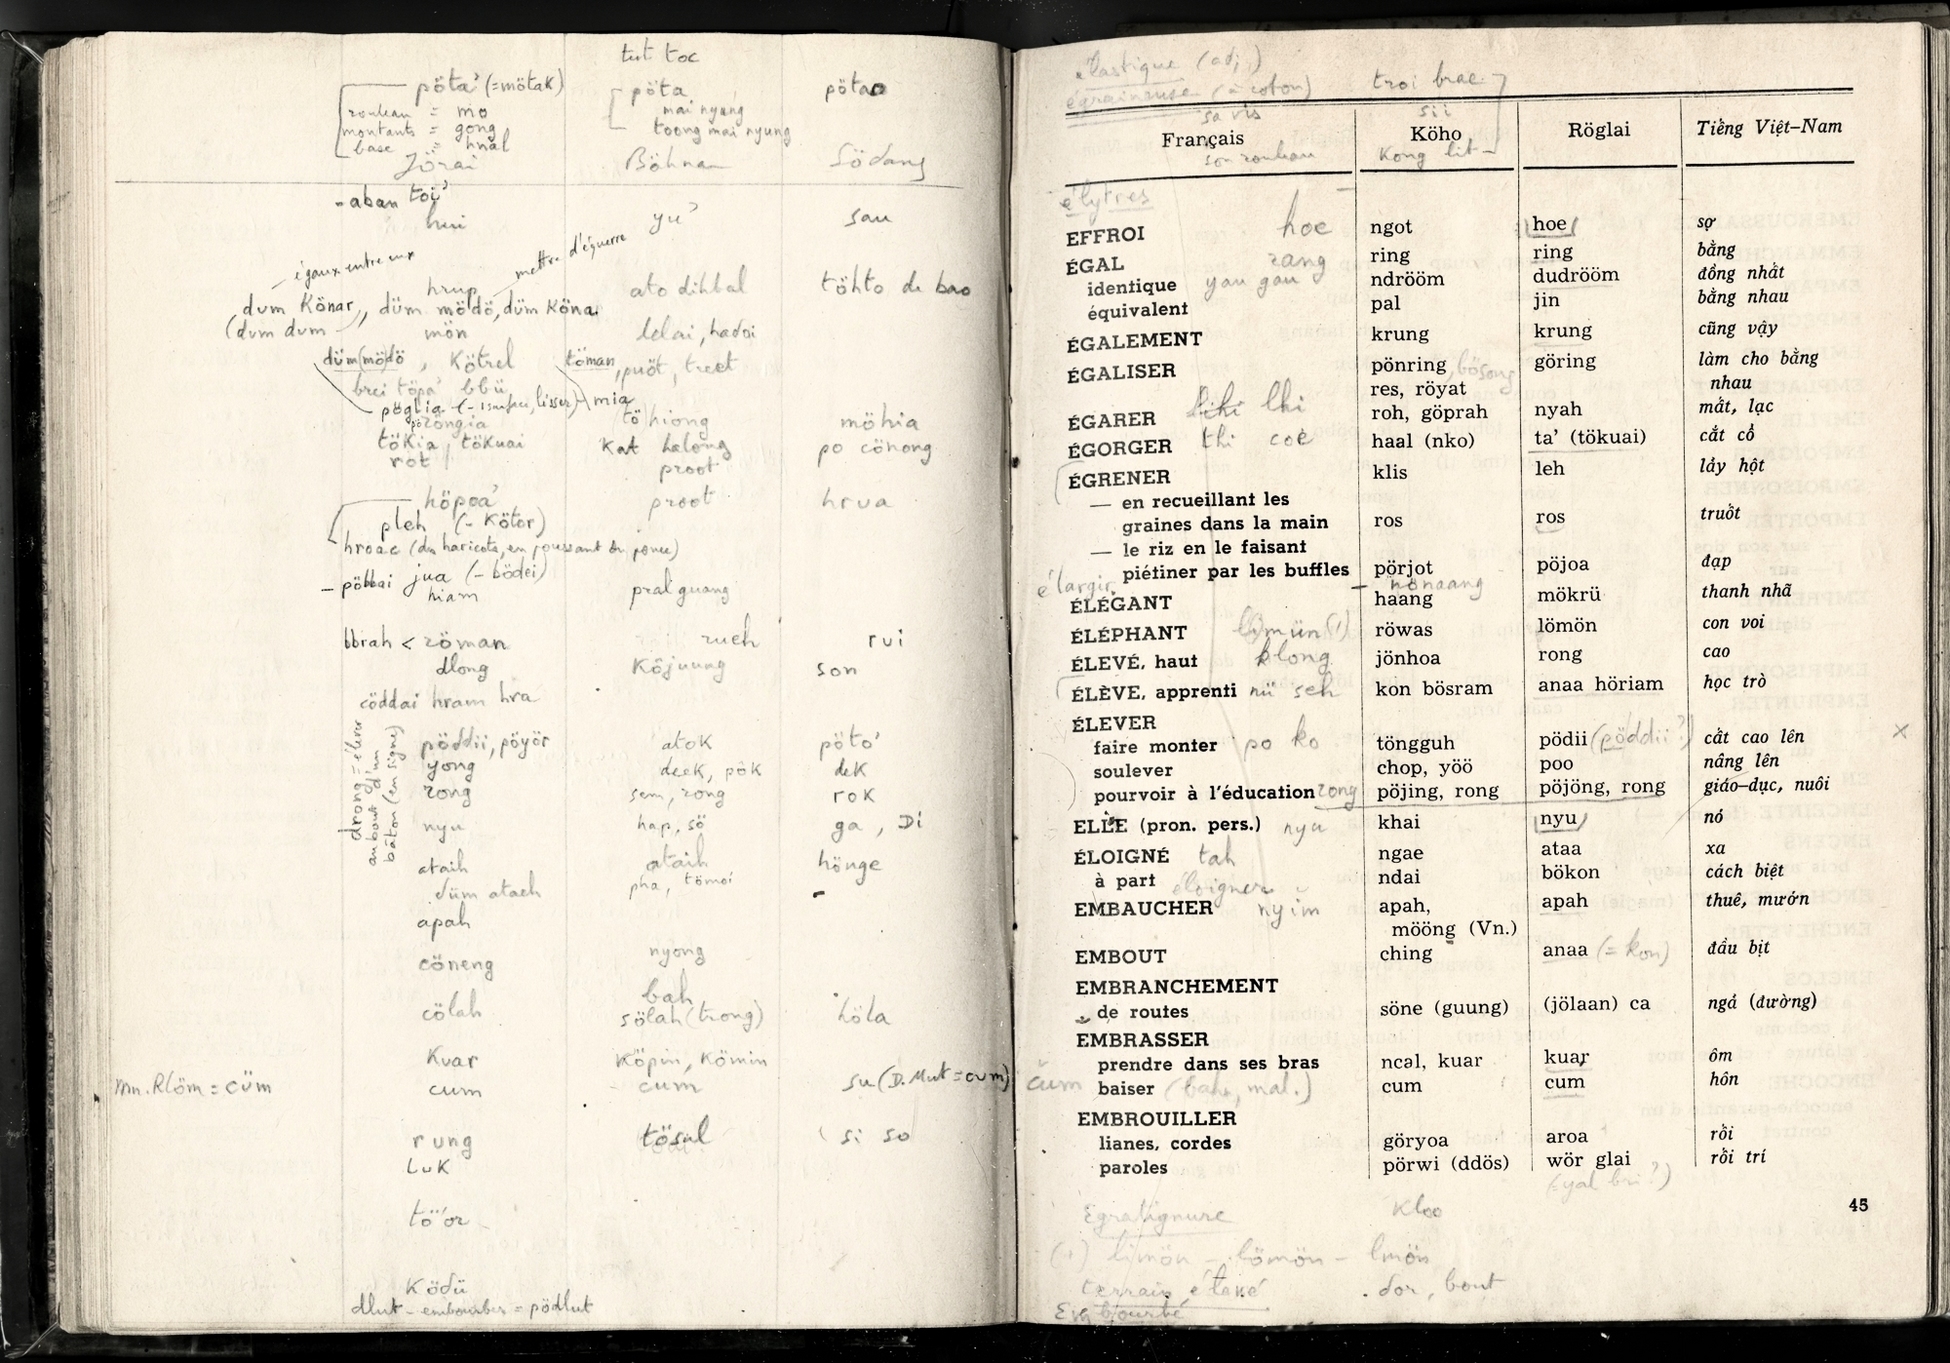 tut toc
pöta' (=mötak) pöta pötao
rouleau = mo mai nyung
montants = gong toong mai nyung
base = hnal
Jörai Böhnar Södang
- aban toi'
hui yu' sau
égaux entre eux mettre d'équerre
hrup ato dihbal töhto de bao
dum Könar, düm mödö, düm Köna
(dum dum mön lelai, hadoi
düm (mö)dö, Kötrel töman, puöt, treet
brei töpa' bbü
pöglia mia
töhiong möhia
tökia, tökuai Kat kolong po cönong
rot proot
höpoa' proot hrua
pleh (- Kötor)
hroac (des haricots, en poussant du pouce)
- pöbbai jua (- bödei)
hiam pral guang
bbrah < röman rueh rui
dlong Köjuung son
cöddai hram hra
drong = élever au bout d'un bâton (en signe)
pöddii, pöyör atok pöto'
yong deek, pök dek
rong sem, rong rok
nyu hap, sö ga, Di
ataih ataih hönge
düm ataeh pha, tömoi
apah
cöneng nyong
bah
cölah sölah (trong) höla
Kuar Köpin, Kömin
Mn. Rlöm = cüm cum cum su (D. Mut = cum)
rung tösul si so
Luk
tö'or
Ködü
dlut - embourber = pödlut
élastique (adj.)
égraineuse (à coton) troi brae
sa vis sii
Français Köho Röglai Tiếng Việt–Nam
son rouleau Kong lit
élytres
EFFROI hoe ngot hoe sợ
ÉGAL rang ring ring bằng
identique yau gau ndrööm dudrööm đồng nhất
équivalent pal jin bằng nhau
ÉGALEMENT krung krung cũng vậy
ÉGALISER pönring, bösong göring làm cho bằng
res, röyat nhau
ÉGARER lhi roh, göprah nyah mất, lạc
ÉGORGER thi coè haal (nko) ta' (tökuai) cắt cổ
ÉGRENER klis leh lấy hột
— en recueillant les
graines dans la main ros ros truốt
— le riz en le faisant
piétiner par les buffles pörjot pöjoa đạp
élargir - nönaang
ÉLÉGANT haang mökrü thanh nhã
ÉLÉPHANT limün (1) röwas lömön con voi
ÉLEVÉ, haut klong jönhoa rong cao
ÉLÈVE, apprenti nü seh kon bösram anaa höriam học trò
ÉLEVER
faire monter po ko töngguh pödii (pöddii?) cất cao lên
soulever chop, yöö poo nâng lên
pourvoir à l'éducation rong pöjing, rong pöjöng, rong giáo–dục, nuôi
ELLE (pron. pers.) nyu khai nyu nó
ÉLOIGNÉ tah ngae ataa xa
à part éloigner ndai bökon cách biệt
EMBAUCHER nyim apah, apah thuê, mướn
mööng (Vn.)
EMBOUT ching anaa (= kon) đầu bịt
EMBRANCHEMENT
de routes söne (guung) (jölaan) ca ngả (đường)
EMBRASSER
prendre dans ses bras ncal, kuar kuar ôm
cüm baiser (bahn, mal.) cum cum hôn
EMBROUILLER
lianes, cordes göryoa aroa rối
paroles pörwi (ddös) wör glai rối trí
(=yal bri?)
45
Egratignure Kloo
(1) limön - lömön - lmön
terrain élevé dor, bout
Embourbé